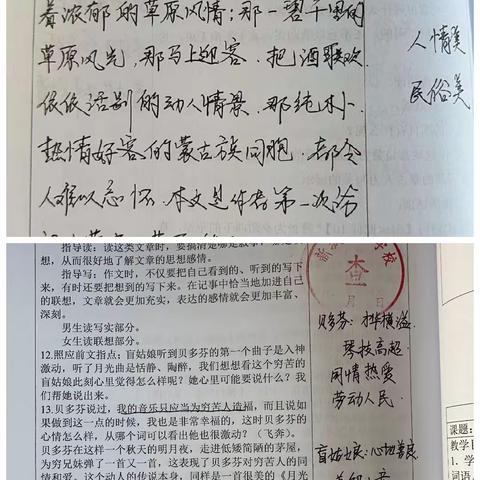 着浓郁的草原风情；那一碧千里的
草原风光，那马上迎客、把酒联欢、
依依话别的动人情景，那纯朴、
热情好客的蒙古族同胞，都令
人难以忘怀。本文是作者第一次
人情美
民俗美
指导读：读这类文章时，要搞清楚哪是
想，从而很好地了解文章的思想感情。
指导写：作文时，不仅要把自己看到的、听到的写下
来，有时还要把想到的写下来。在记事中恰当地加进自己
的联想，文章就会更加充实，表达的感情就会更加丰富、
深刻。
男生读写实部分。
女生读联想部分。
12.照应前文指点；盲姑娘听到贝多芬的第一个曲子是入神
激动，听了月光曲是恬静、陶醉，我们想想看这个穷苦的
盲姑娘此刻心里觉得怎么样呢？她心里可能要说什么？我
们帮她说出来。
13.贝多芬说过，我的音乐只应当为穷苦人造福，而且说如
果做到这一点的时候，我也是非常幸福的，这时贝多芬的
心情怎么样，从哪个词可以看出他也很激动？（飞奔）。
贝多芬在这样一个秋天的明月夜，走进低矮简陋的茅屋，
为穷兄妹弹了一首又一首，这表现了贝多芬对穷苦人的同
情和爱。这个动人的传说本身，同样是一首很美的《月光
校
查
月 日
贝多芬：才华横溢
琴技高超
同情热爱
劳动人民
盲姑娘：心地善良
课题：
教学
1.学
词语